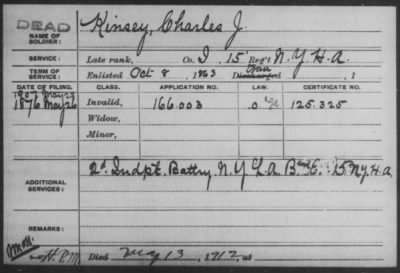 DEAD
NAME OF SOLDIER: Kinsey, Charles J.
SERVICE: Late rank, Co. I, 15 Reg't N.Y.H.A.
TERM OF SERVICE: Enlisted Oct 8, 1863 Discharged , 1
DATE OF FILING. CLASS. APPLICATION NO. LAW. CERTIFICATE NO.
1907 May 27
1876 May 26 Invalid, 166.003 125.325
Widow,
Minor,
ADDITIONAL SERVICES: 2d Indpt. Battry N.Y L.A. 15 N.Y.H.A
REMARKS:
Died May 13, 1912, at